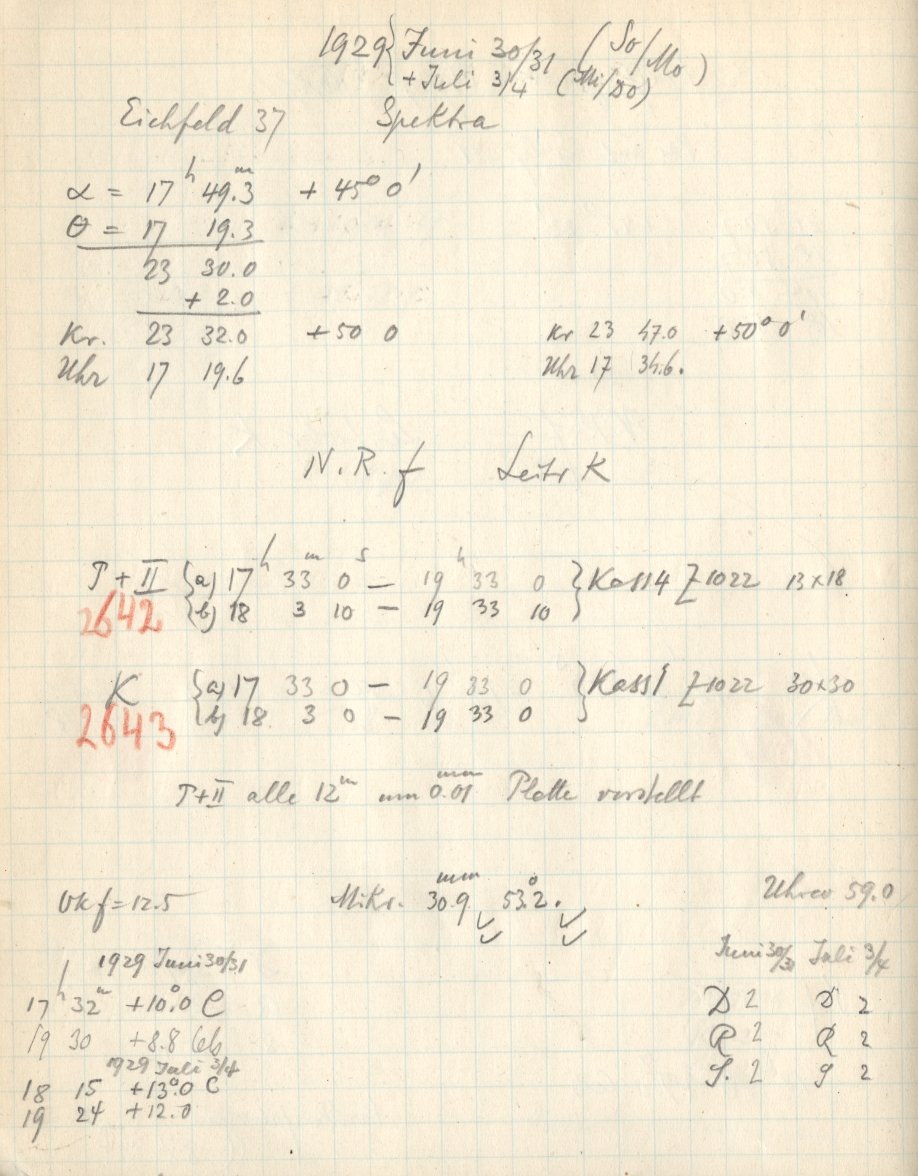 1929 { Juni 30/31 (So/Mo)
+ Juli 3/4 (Mi/Do)
Eichfeld 37 Spektra
α = 17 h 49.3 m + 45° 0'
θ = 17 19.3
23 30.0
+ 2.0
Kr. 23 32.0 +50 0
Uhr 17 19.6
Kr 23 47.0 +50° 0'
Uhr 17 34.6.
N.R. f Leitr K
T + II { a) 17 h 33 m 0 s — 19 h 33 0 } Kass 4 Z 1022 13x18
2642 { b) 18 3 10 — 19 33 10 }
K { a) 17 33 0 — 19 33 0 } Kass 1 Z 1022 30x30
2643 { b) 18 3 0 — 19 33 0 }
T+II alle 12 m um 0.01 mm Platte verstellt
Okf = 12.5 Mikr. 30.9 mm 53.2°. Uhrco 59.0
1929 Juni 30/31
17 h 32 m +10°.0 C
19 30 +8.8 Cels
1929 Juli 3/4
18 15 +13°.0 C
19 24 +12.0
Juni 30/31 Juli 3/4
D 2 D 2
R 2 R 2
S. 2 S 2